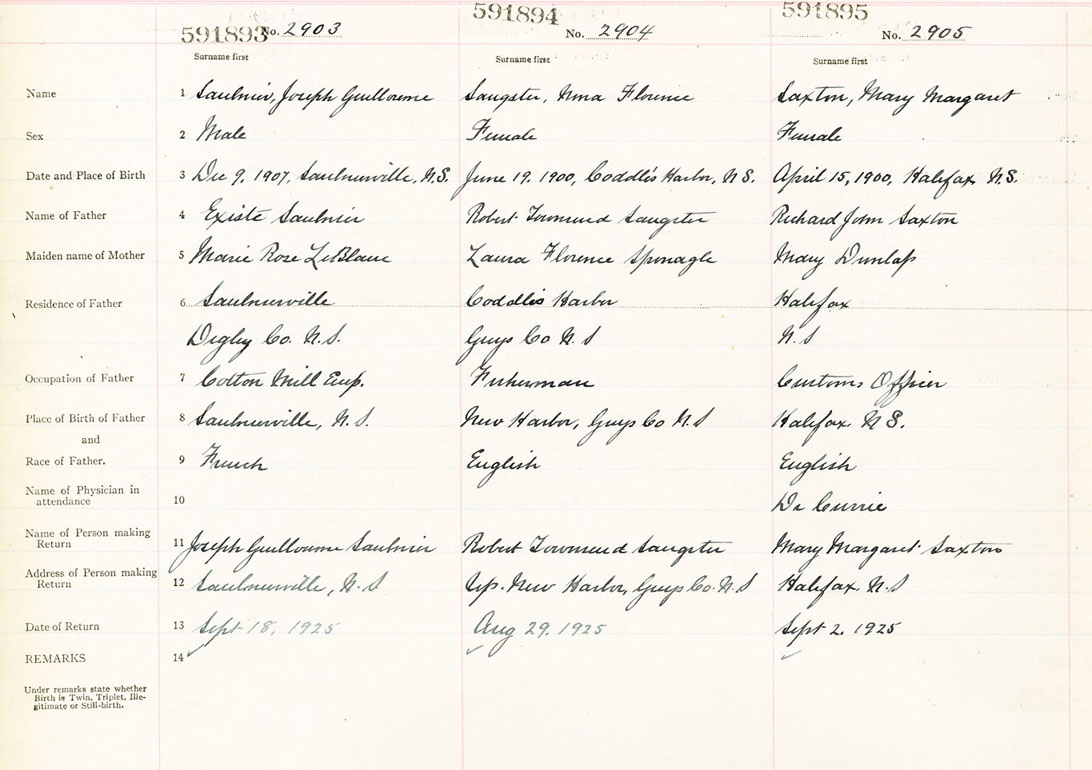 591893 No. 2903 591894 No. 2904 591895 No. 2905
Surname first Surname first Surname first
Name 1 Saulnier, Joseph Guilloume Sangster, Nina Florence Saxton, Mary Margaret
Sex 2 Male Female Female
Date and Place of Birth 3 Dec 9, 1907, Saulnierville, N.S. June 19, 1900, Coddle's Harbor, N S. April 15, 1900, Halifax N.S.
Name of Father 4 Existe Saulnier Robert Townsend Sangster Richard John Saxton
Maiden name of Mother 5 Marie Rose LeBlanc Laura Florence Sponagle Mary Dunlap
Residence of Father 6 Saulnierville Coddles Harbor Halifax
Digby Co. N.S. Guys Co N S N.S
Occupation of Father 7 Cotton Mill Emp. Fisherman Customs Officer
Place of Birth of Father 8 Saulnierville, N.S. New Harbor, Guys Co N.S Halifax N S.
and
Race of Father. 9 French English English
Name of Physician in
attendance 10 Dr Currie
Name of Person making
Return 11 Joseph Guilloume Saulnier Robert Townsend Sangster Mary Margaret Saxton
Address of Person making
Return 12 Saulnierville, N.S New Harbor, Guys Co. N.S Halifax N.S
Date of Return 13 Sept 18, 1925 Aug 29, 1925 Sept 2, 1925
REMARKS 14
Under remarks state whether
Birth is Twin, Triplet, Ille-
gitimate or Still-birth.